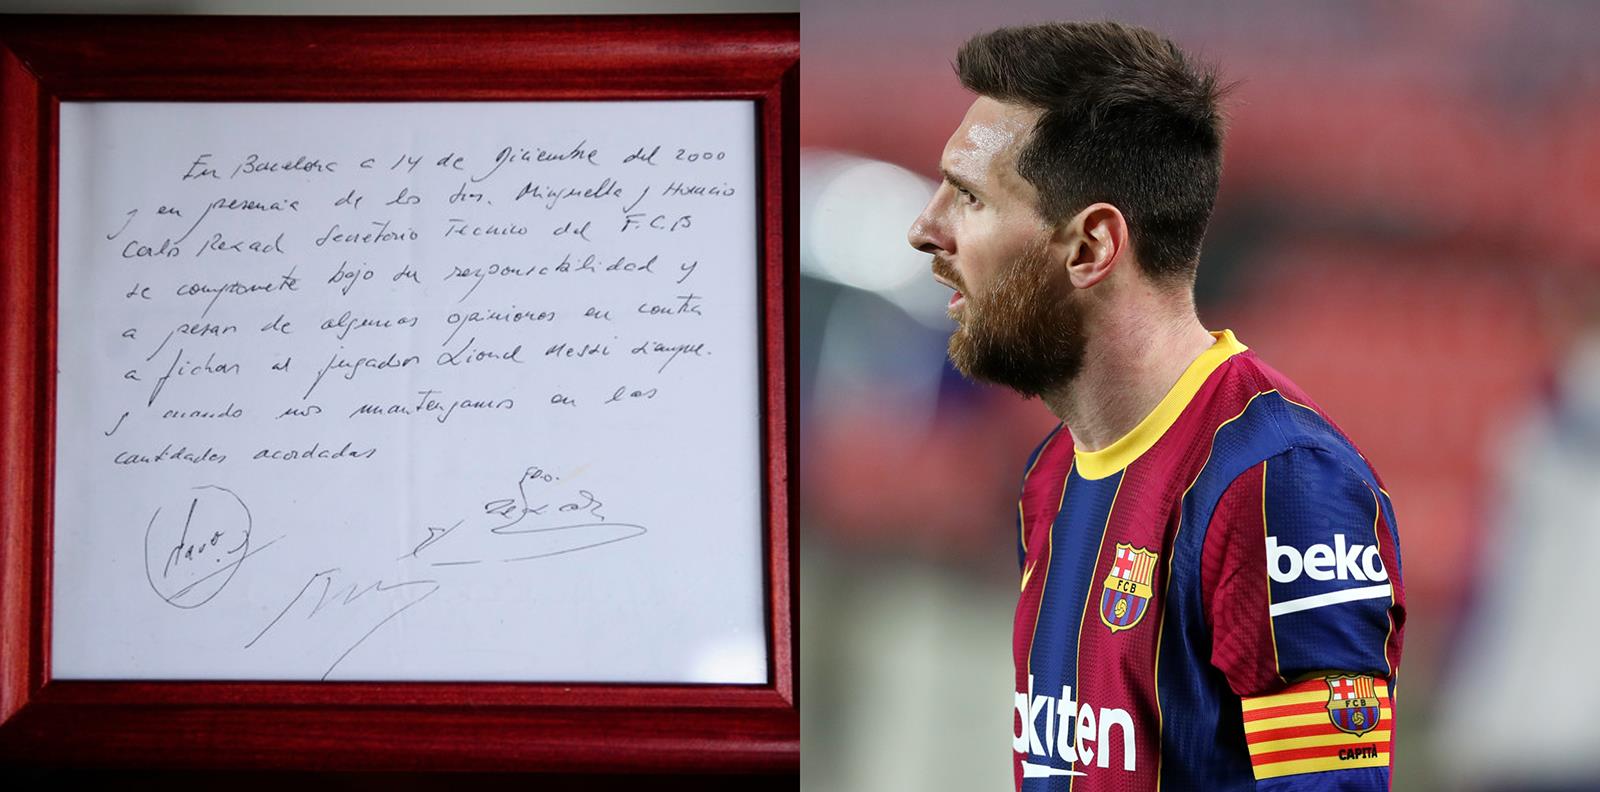 En Barcelona a 14 de Diciembre del 2000
y en presencia de los Sres. Minguella y Horacio
Carlos Rexach Secretario Técnico del F.C.B
se compromete bajo su responsabilidad y
a pesar de algunas opiniones en contra
a fichar al jugador Lionel Messi siempre
y cuando nos mantengamos en las
cantidades acordadas
beko
FCB
FCB
CAPITÀ
akuten